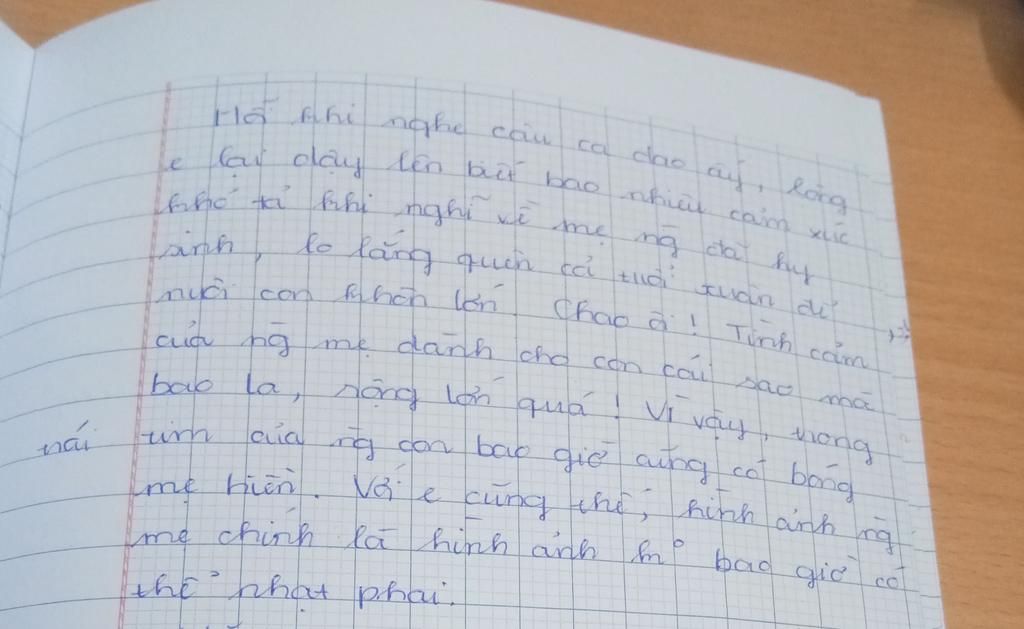 Mỗi khi nghe câu ca dao ấy, lòng
e lại dậy lên biết bao nhiêu cảm xúc
khó tả khi nghĩ về mẹ ng đã hy
sinh, lo lắng quên cả tuổi xuân để
nuôi con khôn lớn. Chao ôi! Tình cảm
của ng mẹ dành cho con cái sao mà
bao la, rộng lớn quá! Vì vậy, trong
trái tim của ng con bao giờ cũng có bóng
mẹ hiền. Với e cũng thế, hình ảnh ng
mẹ chính là hình ảnh k° bao giờ có
thể nhạt phai.